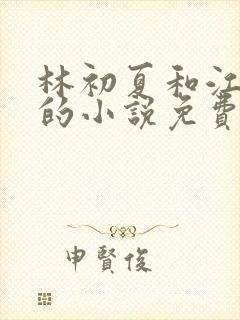 林初夏和江
的小説免費
申賢俊